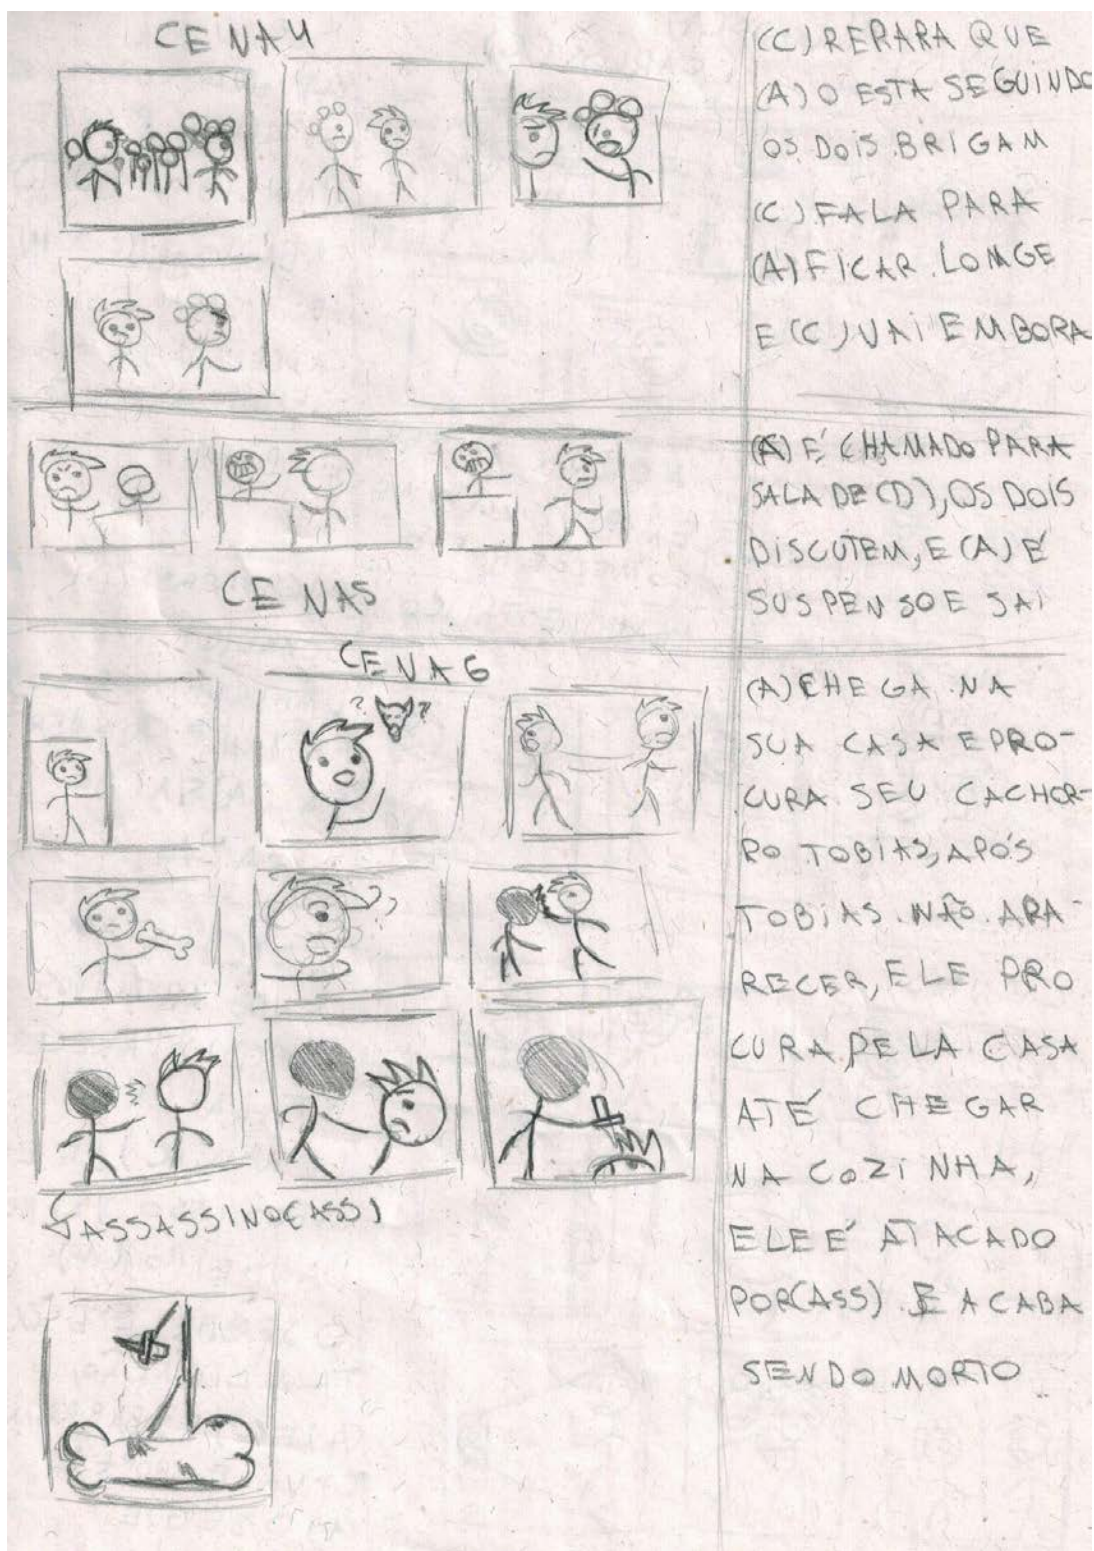 CENA 4
(C) REPARA QUE
(A) O ESTA SEGUINDO
OS DOIS BRIGAM
(C) FALA PARA
(A) FICAR LONGE
E (C) VAI EMBORA
(A) É CHAMADO PARA
SALA DE (D), OS DOIS
DISCUTEM, E (A) É
SUSPENSO E SAI
CENA 5
CENA 6
? ?
(A) CHEGA NA
SUA CASA E PRO-
CURA SEU CACHOR-
RO TOBIAS, APÓS
TOBIAS NÃO APA-
RECER, ELE PRO
CURA PELA CASA
ATÉ CHEGAR
NA COZINHA,
ELE É ATACADO
POR (ASS) E ACABA
SENDO MORTO
ASSASSINO (ASS)